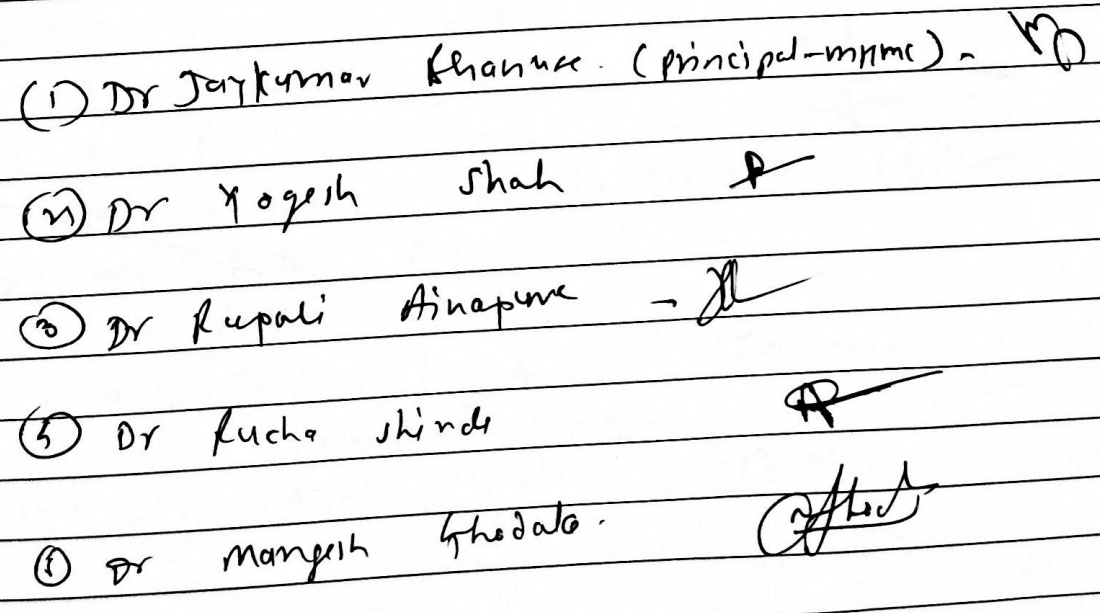 (1) Dr Jaykumar (principal-mnmc) -
(2) Dr Yogesh Shah
(3) Dr Rupali Ainapure -
Dr Rucha Shinde
Dr Mangesh Ghodake.